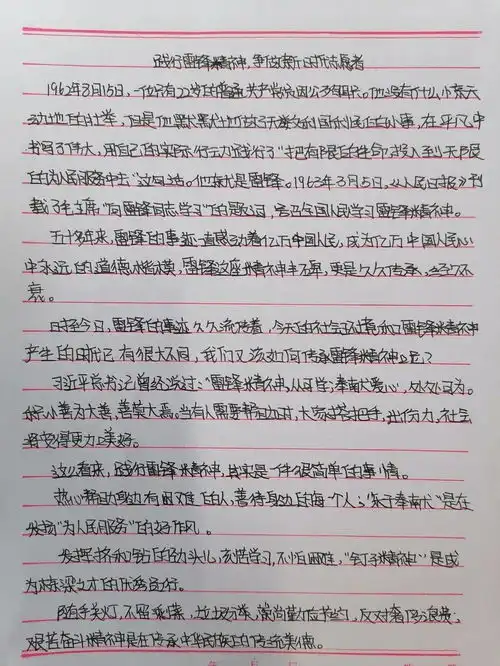 践行雷锋精神,争做新时代志愿者
1962年8月15日,一位只有22岁的普通共产党员因公殉职。他没有什么惊天
动地的壮举,但是他默默地做了无数利国利民的小事,在平凡中
书写了伟大,用自己的实际行动践行了"把有限的生命投入到无限
的为人民服务中去"这句话。他就是雷锋。1963年3月5日,《人民日报》刊
载了毛主席"向雷锋同志学习"的题词,号召全国人民学习雷锋精神。
五十多年来,雷锋的事迹一直感动着亿万中国人民,成为亿万中国人民心
中永远的道德楷模,雷锋这座精神丰碑,更是久久传承,经久不
衰。
时授今日,雷锋的事迹久久流传着,今天的社会环境和雷锋精神
产生的时代已有很大不同,我们又该如何传承雷锋精神呢?
习近平总书记曾经说过:"雷锋精神,人人可学;奉献爱心,处处可为。
积小善为大善,善莫大焉。当有人需要帮助时,大家搭把手、出份力,社会
将变得更加美好。
这么看来,践行雷锋精神,其实是一件很简单的事情。
热心帮助身边有困难的人,善待身边的每一个人;"乐于奉献"是在
发扬"为人民服务"的好作风。
发挥挤和钻的劲头儿,刻苦学习,不怕困难,"钉子精神"是成
为栋梁之才的优秀品行。
随手关灯,不留剩菜,垃圾分类,崇尚勤俭节约,反对奢侈浪费;
艰苦奋斗精神是在传承中华民族上的传统美德。
年 月 日